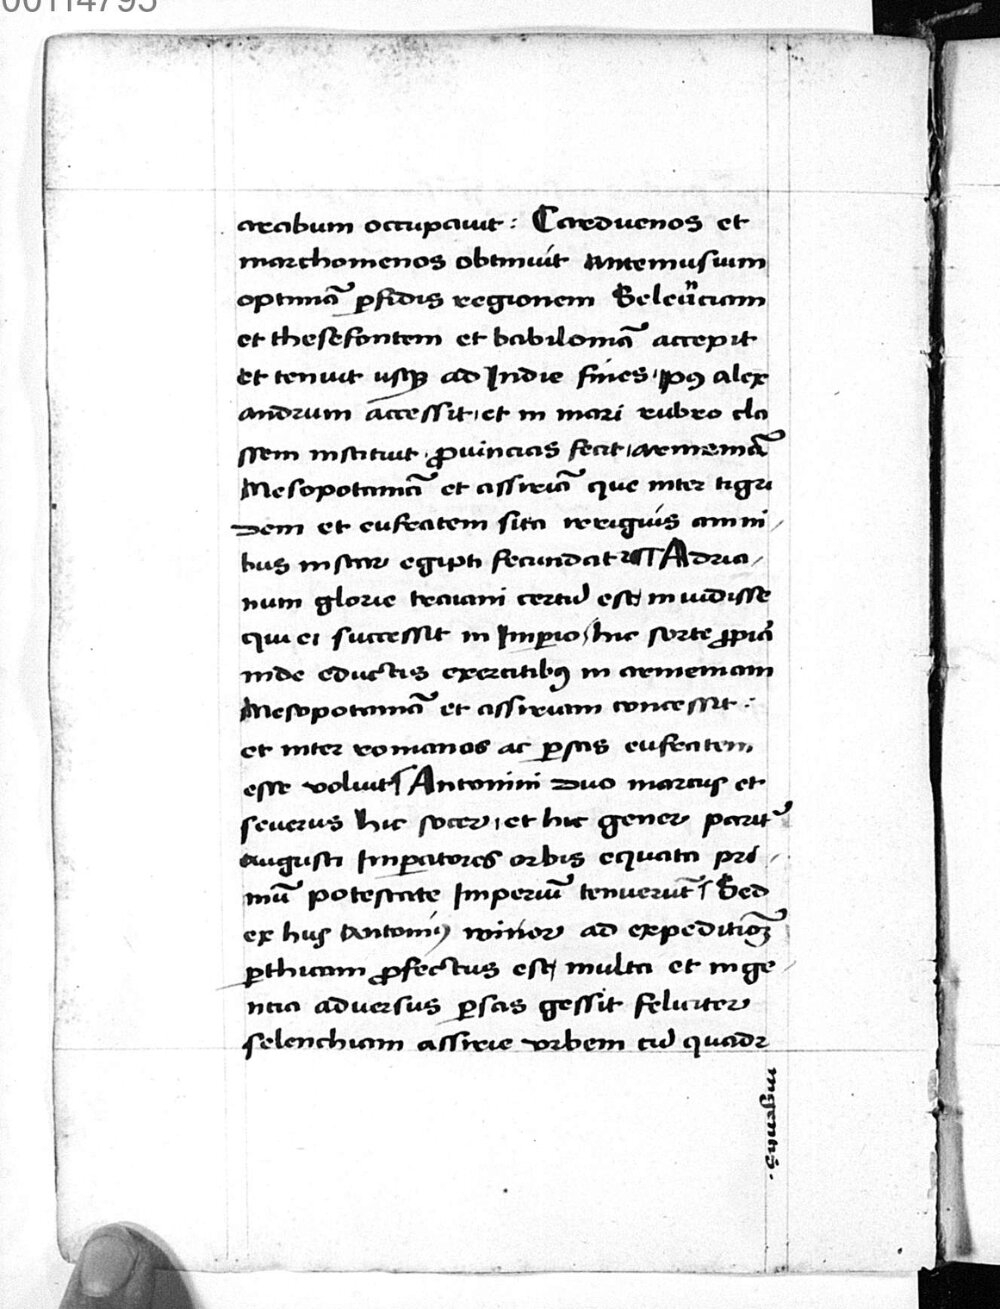 00114795
arabum occupauit : Carduenos et
marchomenos obtinuit Antemusium
optimā ꝑsidis regionem Seleuciam
et thesefontem et babiloniā accepit
Et tenuit usqꝫ ad Indie fines, pꝰ alex
andrum accessit, et in mari rubro cla
ssem instituit, ꝓuincias fecit, armeniā
Mesopotamiā et assiriā que inter tigri
dem et eufratem sita irriguis amni/
bus instar egipti fecundatur Adria/
num glorie traiani certū est inuidisse
qui ei successit in Imꝑio, hic sorte ꝓpiā
inde eductis exercitibꝰ in armeniam
Mesopotamiā et assiriam concessit :
et inter romanos ac ꝑsas eufratem
esse voluit Antonini duo marcus et
seuerus hic socer, et hic gener parit᷑
Augusti Imꝑatores orbis equata pri/
mū potestate Imperiū tenuerūt Sed
ex his Antoniꝰ minor ad expeditiōꝫ
ꝑthicam ꝓfectus est, multa et inge/
ntia aduersus ꝑsas gessit feliciter
selenchiam assirie vrbem cū quadr
ingentis.